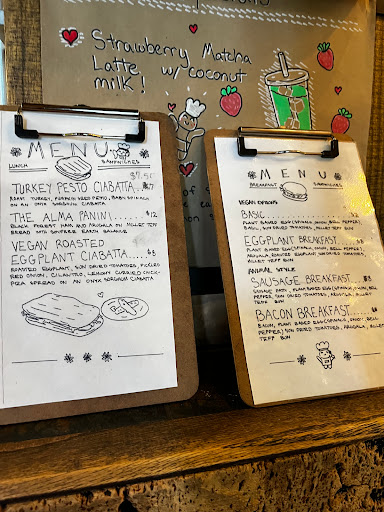 Strawberry Matcha
Latte w/ coconut
milk!
MENU
LUNCH SANDWICHES
$7.50
TURKEY PESTO CIABATTA
ROAST TURKEY, PUMPKIN SEED PESTO, BABY SPINACH
ON AN ONYX SORGHUM CIABATTA
THE ALMA PANINI $12
BLACK FOREST HAM AND ARUGULA ON MILLET TEFF
BREAD WITH
VEGAN ROASTED
EGGPLANT CIABATTA
ROASTED EGGPLANT, SUN DRIED TOMATOES, PICKLED
RED ONION, CILANTRO, LEMONY CURRIED CHICK-
PEA SPREAD ON AN ONYX SORGHUM CIABATTA
MENU
BREAKFAST SANDWICHES
VEGAN OPTIONS
BASIC
PLANT BASED EGG (SPINACH, ONION, BELL PEPPER)
BASIL, SUN DRIED TOMATOES, MILLET TEFF BUN
EGGPLANT BREAKFAST
PLANT BASED EGG (SPINACH, ONION, BELL PEPPER)
ARUGULA, ROASTED EGGPLANT, SUN DRIED TOMATOES,
MILLET TEFF BUN
ANIMAL STYLE
SAUSAGE BREAKFAST
SAUSAGE PATTY, PLANT BASED EGG (SPINACH, ONION, BELL
PEPPER, SUN DRIED TOMATOES, ARUGULA, MILLET
TEFF BUN
BACON BREAKFAST
BACON, PLANT BASED EGG (SPINACH, ONION, BELL
PEPPER) SUN DRIED TOMATOES, ARUGULA, MILLET
TEFF BUN